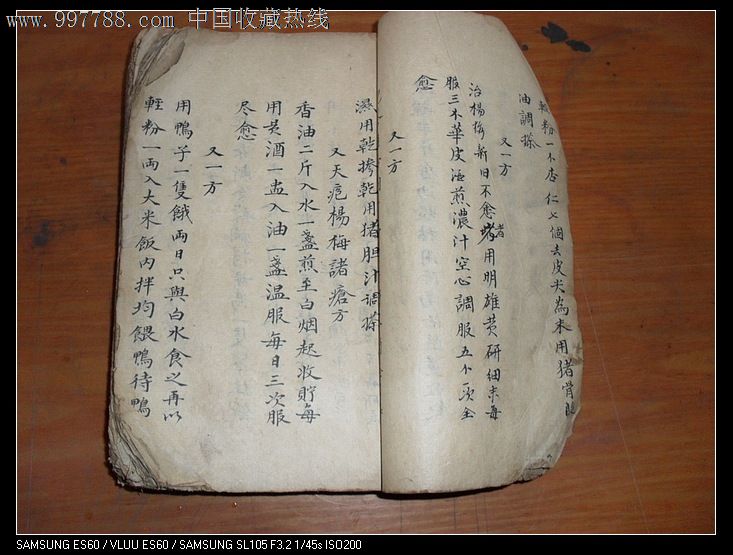 www.997788.com 中国收藏热线
輕粉一个杏仁七個去皮尖為末用猪骨
油調搽
又一方
治楊梅新旧不愈者用明雄黄研細末每
服三个華皮海煎濃汁空心調服五个頭全
愈
又一方
濕用乾摻乾用猪胆汁調搽
又天疱楊梅諸瘡方
香油二斤入水一盏煎至白烟起收貯每
用黄酒一盅入油一盏温服每日三次服
尽愈
又一方
用鴨子一隻餓两日只與白水食之再以
輕粉一两入大米飯内拌均餵鴨待鴨
SAMSUNG ES60 / VLUU ES60 / SAMSUNG SL105 F3.2 1/45s ISO200